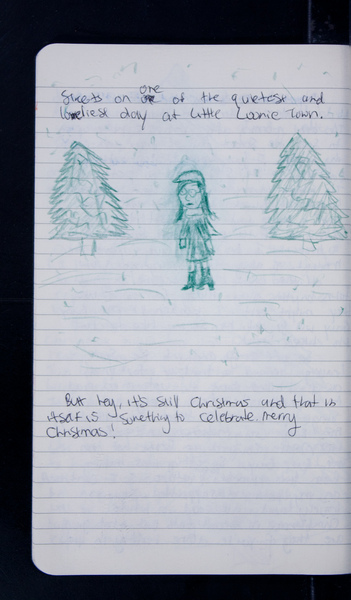 Streets on one of the quietest and
loneliest day at Little Loonie Town.
But hey, it's still Christmas and that in
itself is something to celebrate. Merry
Christmas!